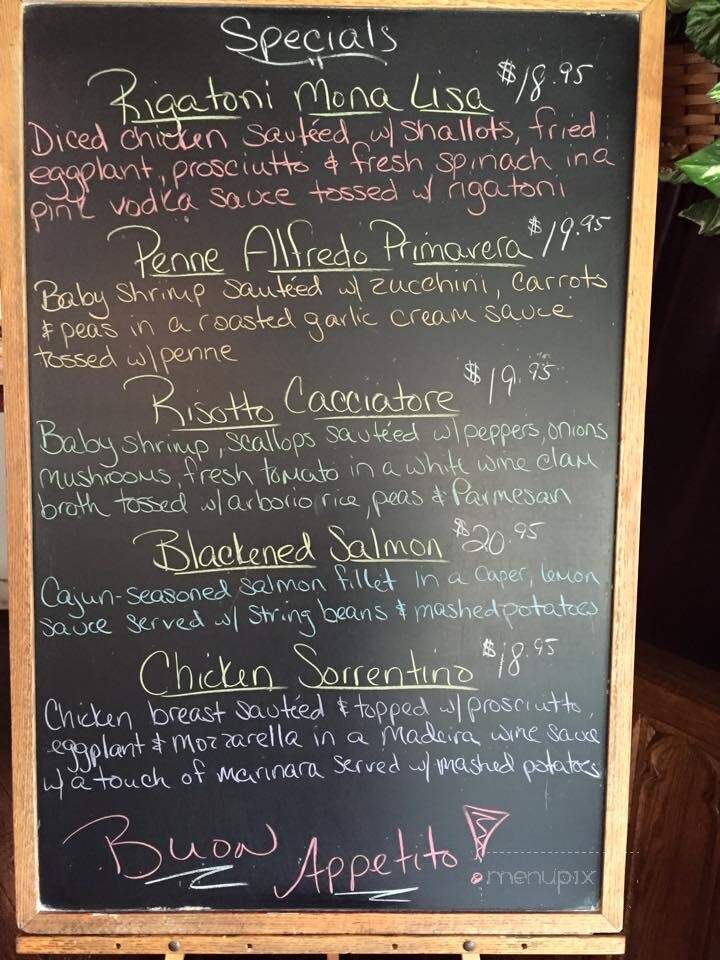 Specials
Rigatoni Mona Lisa $18.95
Diced chicken sautéed w/ shallots, fried
eggplant, prosciutto & fresh spinach in a
pink vodka sauce tossed w/ rigatoni
Penne Alfredo Primavera $19.95
Baby shrimp sautéed w/ zucchini, carrots
& peas in a roasted garlic cream sauce
tossed w/ penne
Risotto Cacciatore $19.95
Baby shrimp, scallops sautéed w/ peppers, onions
mushrooms, fresh tomato in a white wine clam
broth tossed w/ arborio rice, peas & Parmesan
Blackened Salmon $20.95
Cajun-seasoned salmon fillet in a caper, lemon
sauce served w/ string beans & mashed potatoes
Chicken Sorrentino $18.95
Chicken breast sautéed & topped w/ prosciutto,
eggplant & mozzarella in a Madeira wine sauce
w/ a touch of marinara served w/ mashed potatoes
Buon Appetito!
menupix